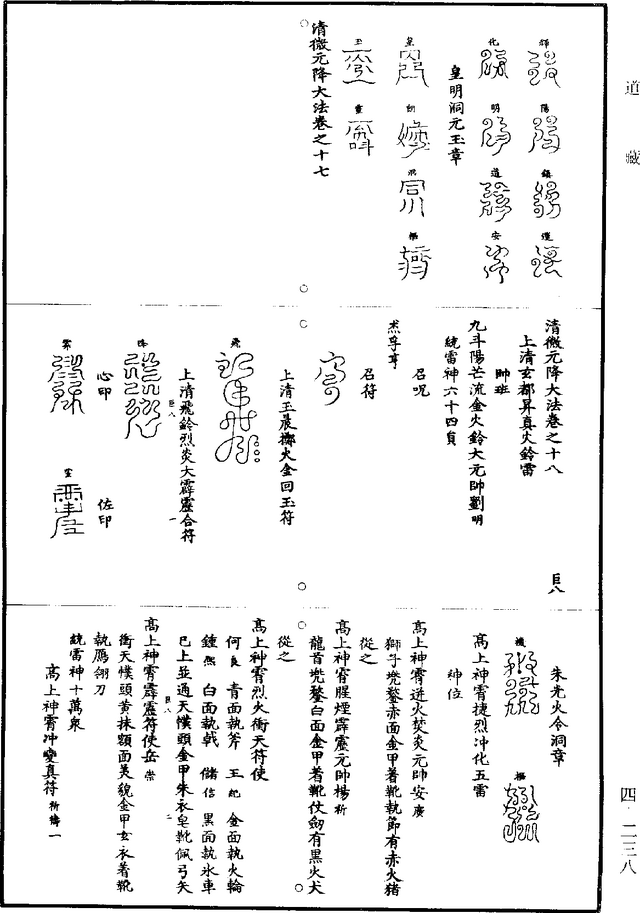 道藏
輝 陽 鎮 運
化 明 道 安
皇明洞元玉章
皇 朗 洞 樞
玉 靈
清微元降大法卷之十七
清微元降大法卷之十八
巨八
上清玄都昇真火鈴雷
帥班
九斗陽芒流金火鈴大元帥劉明
統雷神六十四員
召呪
杰孚亨
召符
上清玉晨擲火金回玉符
飛
上清飛鈴烈炎大霹靂合符
巨八 一
降
心印 佐印
朱光火令洞章
高上神霄捷烈冲化五雷
帥位
高上神霄迸火焚炎元帥安廣
獅子兠鍪赤面金甲着靴執節有赤火猪
從之
高上神霄腥煙霹靂元帥楊祈
龍首兠鍪白面金甲着靴仗劒有黑火犬
從之
高上神霄烈火衝天符使
何良 青面執斧 王紀 金面執火輪
鍾熊 白面執戟 儲信 黑面執氷車
巳上並通天幞頭金甲朱衣皂靴佩弓矢
巨八 二
高上神霄霹靂符使岳崇
衝天幞頭黃抹額面美貌金甲玄衣着靴
執鴈翎刀
統雷神十萬衆
高上神霄冲變真符祈禱一
四·二三八